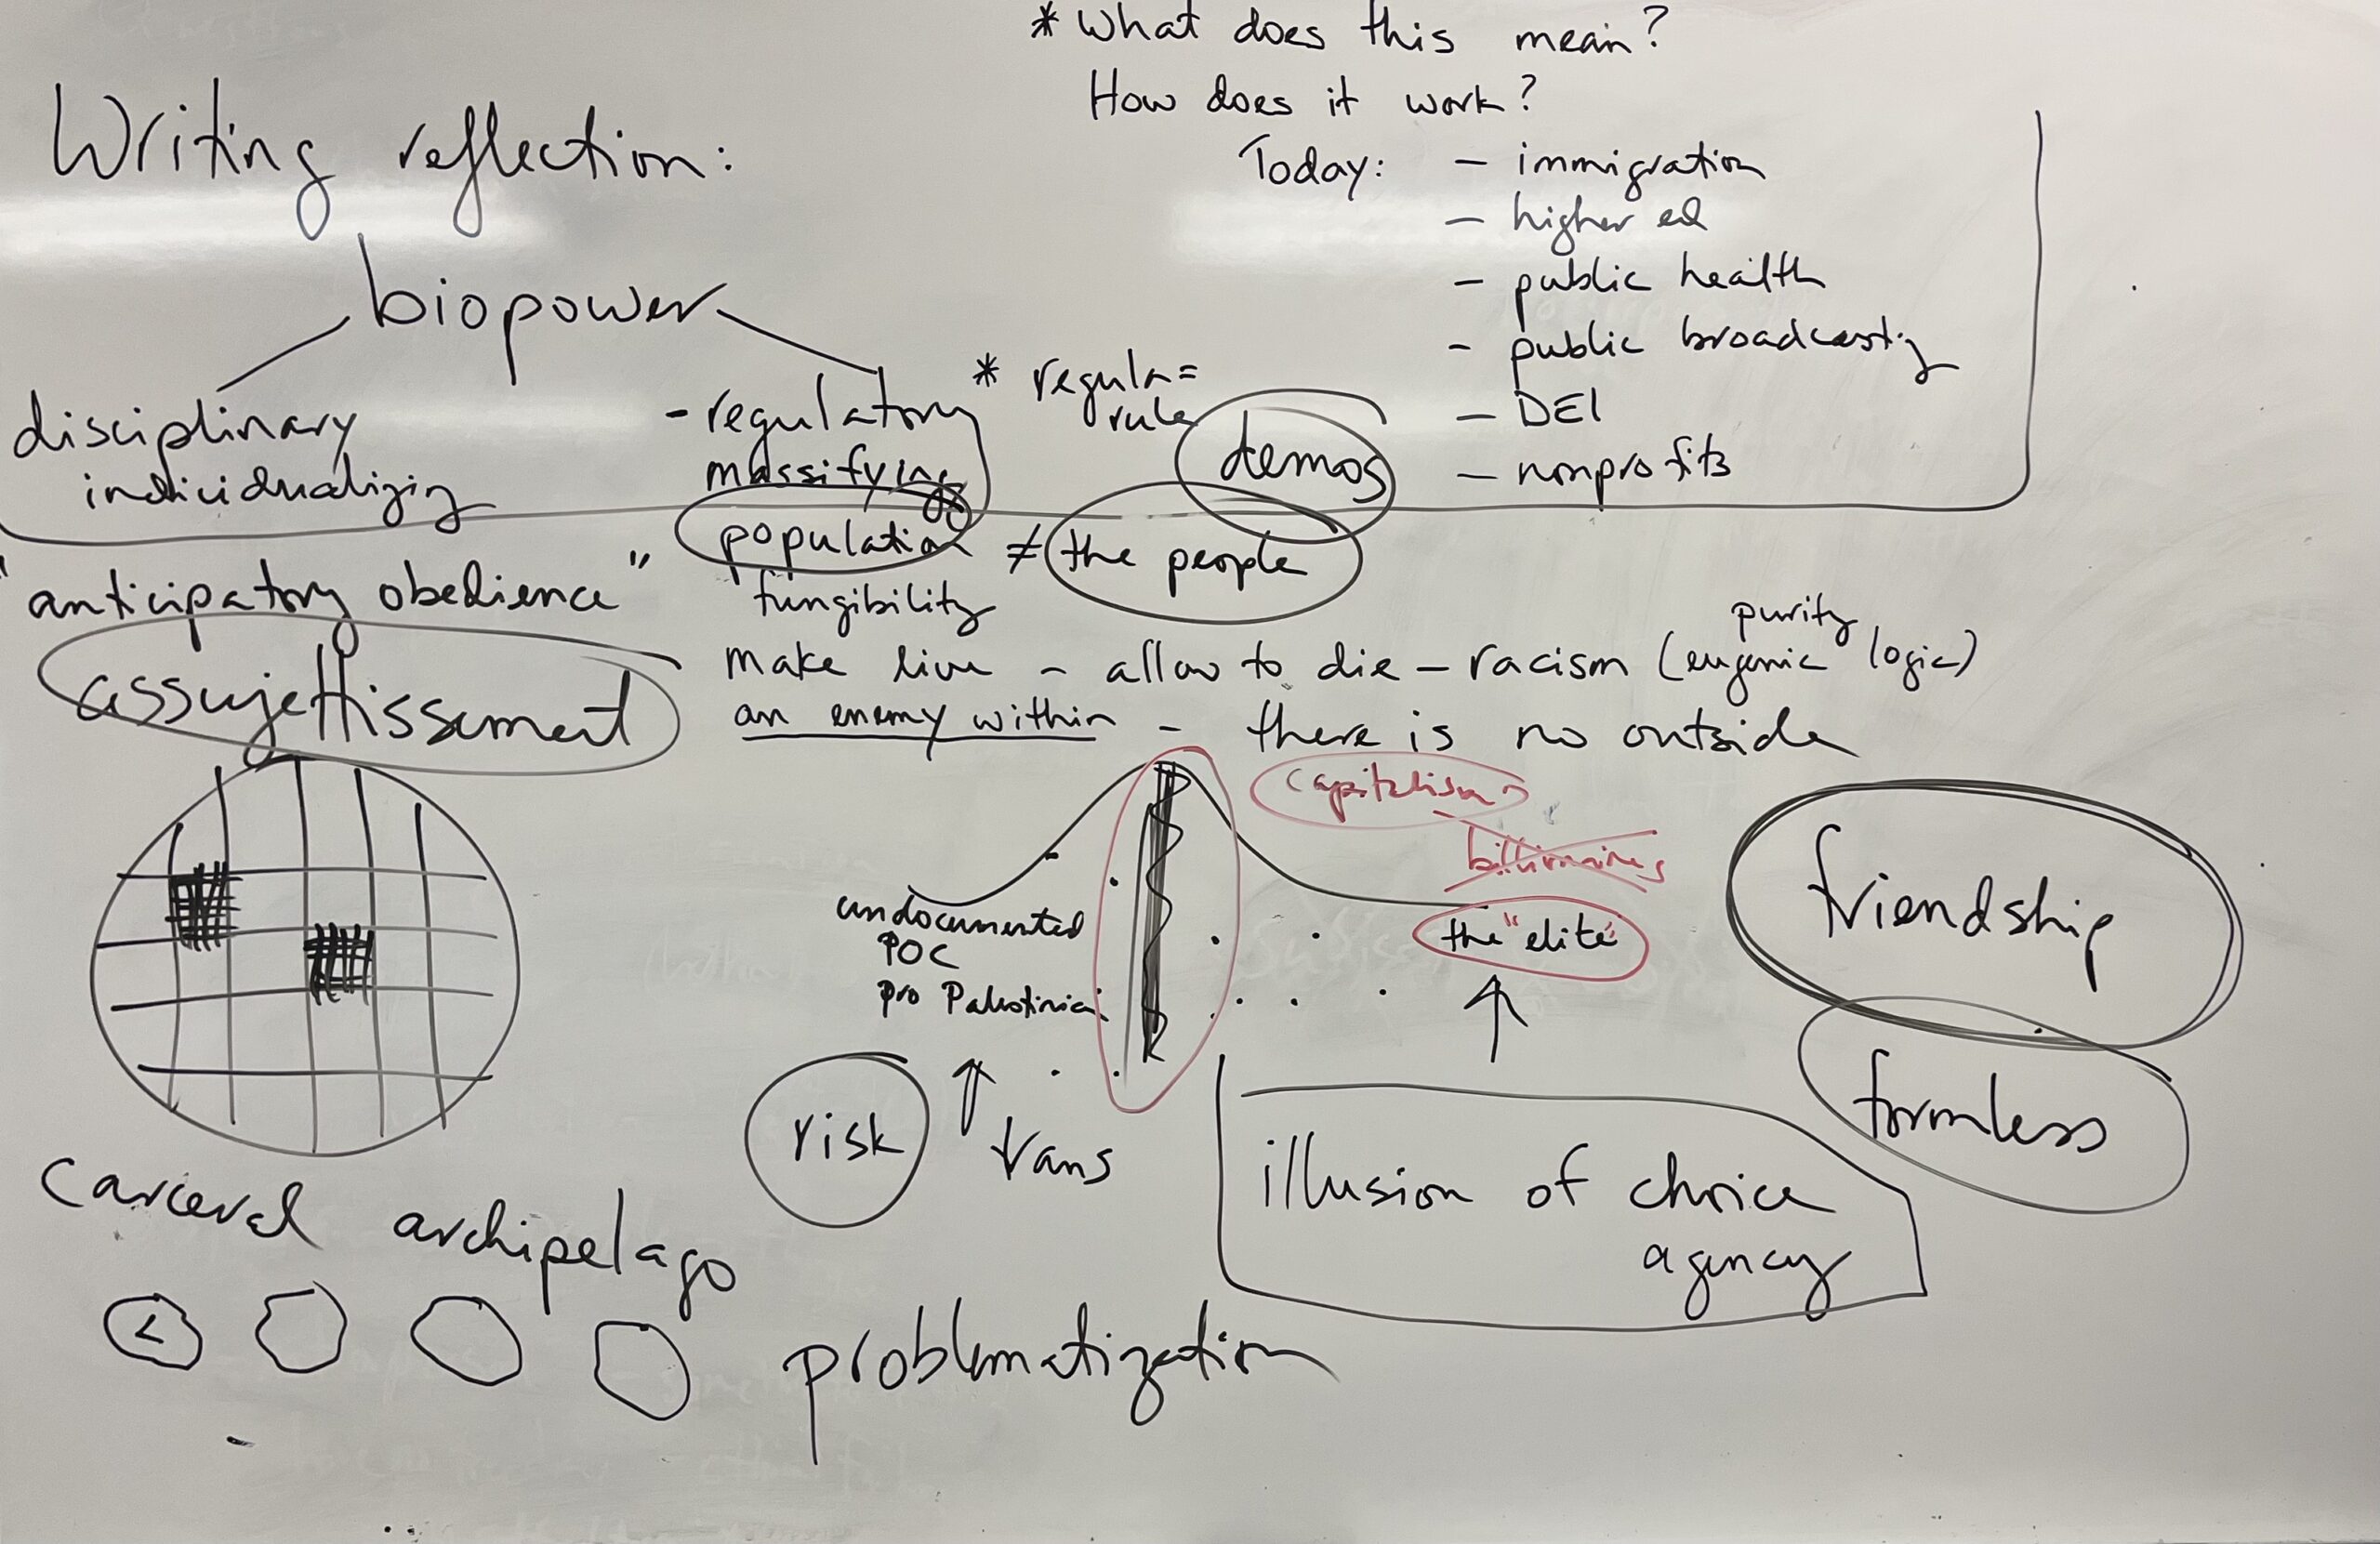 * What does this mean?
How does it work?
Today: – immigration
– higher ed
– public health
– public broadcasting
– DEI
– nonprofits
Writing reflection:
biopower
disciplinary
individualizing
- regulatory
massifying
* regula =
rule
demos
population ≠ the people
"anticipatory obedience"
fungibility
assujettissement
make live - allow to die – racism (eugenic purity logic)
an enemy within - there is no outside
capitalism
billionaires
the "elite"
undocumented
POC
pro Palestinian
friendship
formless
risk
trans
illusion of choice
agency
carceral archipelago
problematization